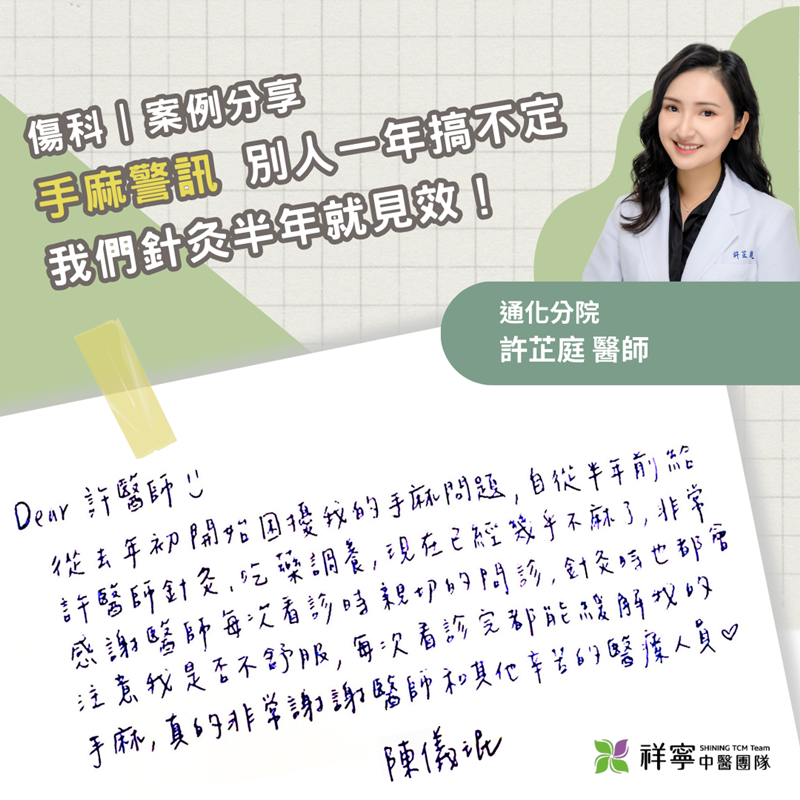 傷科｜案例分享
手麻警訊 別人一年搞不定
我們針灸半年就見效！
許芷庭
通化分院
許芷庭 醫師
Dear 許醫師
從去年初開始困擾我的手麻問題，自從半年前給
許醫師針灸、吃藥調養，現在已經幾乎不麻了，非常
感謝醫師每次看診時親切的問診，針灸時也都會
注意我是否不舒服，每次看診完都能緩解我的
手麻，真的非常謝謝醫師和其他辛苦的醫療人員♡
陳儀
祥寧 SHINING TCM Team
中醫團隊